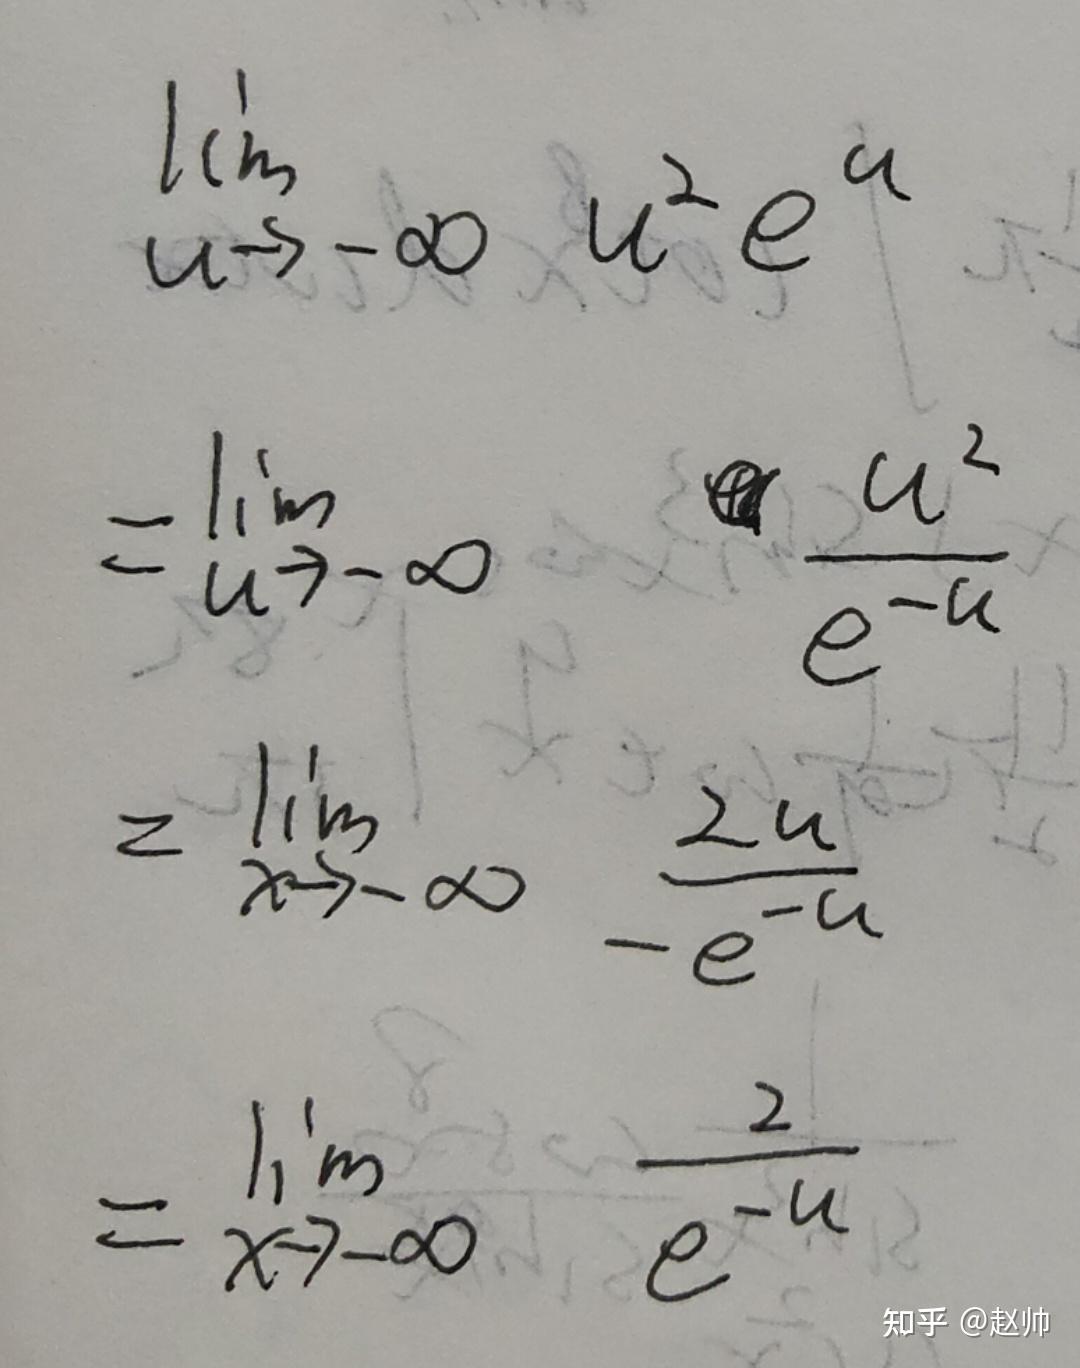 lim u→-∞ u² e^u
= lim u→-∞ u² / e^-u
= lim x→-∞ 2u / -e^-u
= lim x→-∞ 2 / e^-u
知乎 @赵帅